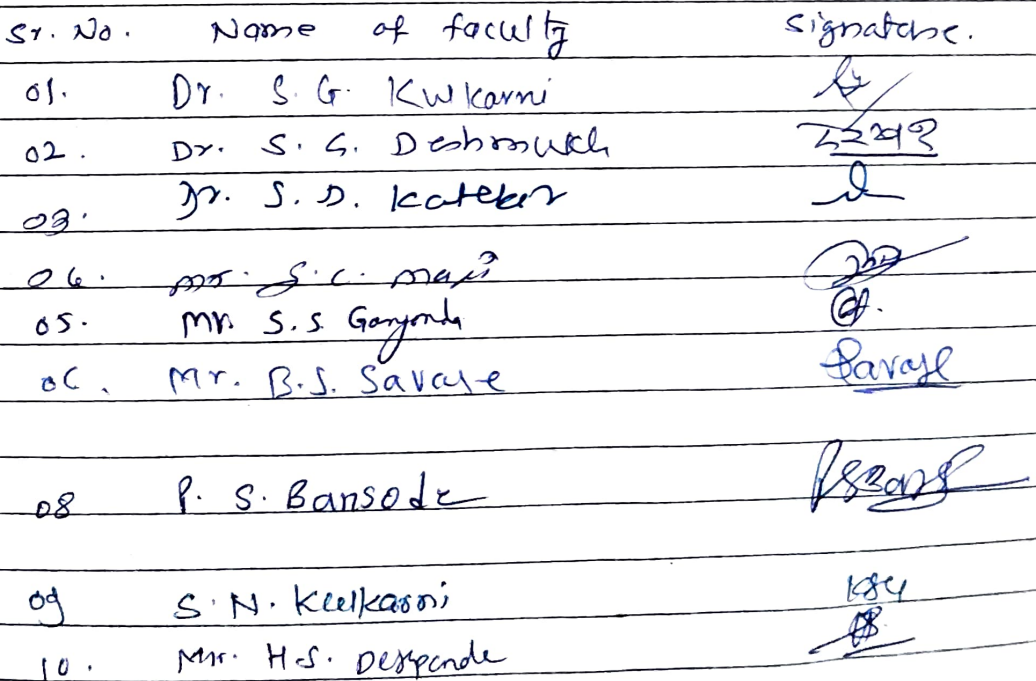 Sr. No. Name of faculty Signature.
01. Dr. S. G. Kulkarni
02. Dr. S. G. Deshmukh
03. Dr. S. D. Katekar
04. Mr. S. C. Mali
05. Mr. S. S.
06. Mr. B. S. Savase Savase
08 P. S. Bansode
09 S. N. Kulkarni
10. Mr. H. S. Despande